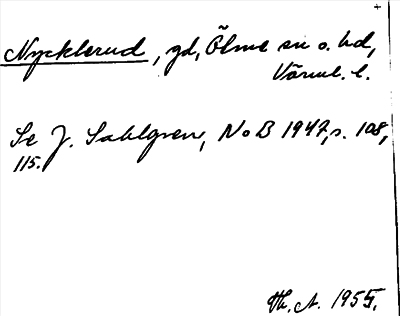 Nycklerud, gd, Ölme sn o. hd,
Värml. l.
Se J. Sahlgren, NoB 1947, s. 108,
115.
Th. A. 1955.